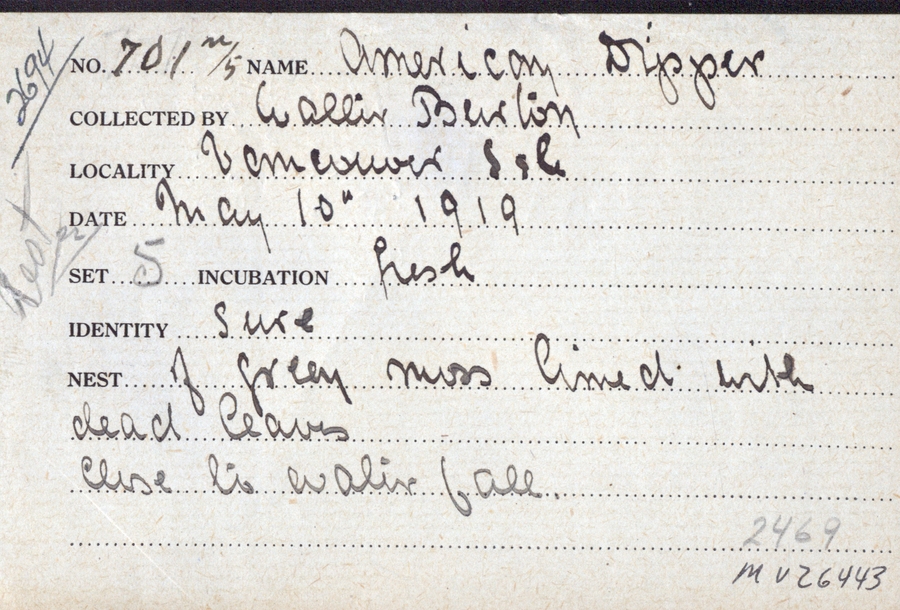 2694
NO. 701 n/5 NAME American Dipper
COLLECTED BY Walter Burton
LOCALITY Vancouver Isl
DATE May 10" 1919
SET 5 INCUBATION fresh
IDENTITY Sure
NEST of green moss lined with
dead leaves
close to water fall.
2469
MV26443